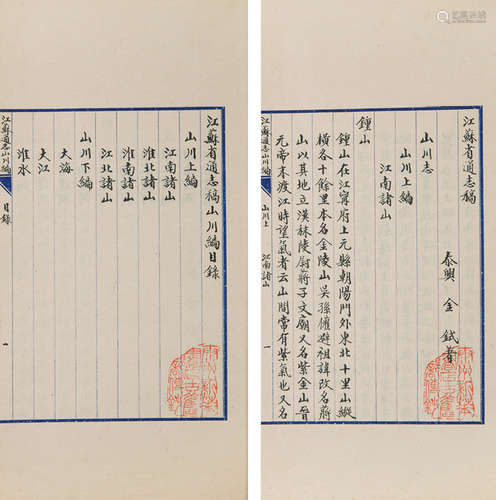 江蘇省通志稿
泰興金鉽著
山川志
山川上編
江南諸山
鍾山
鍾山在江寧府上元縣朝陽門外東北十里山縱
橫各十餘里本名金陵山吳孫權避祖諱改名蔣
山以其地立漢秣陵尉蔣子文廟又名紫金山晉
元帝本渡江時望氣者云山間常有紫氣也又名
江蘇通志山川編
山川上
江南諸山
一
江蘇省通志稿山川編目錄
山川上編
江南諸山
淮北諸山
淮南諸山
江北諸山
山川下編
大海
大江
淮水
江蘇通志山川編
目錄
一